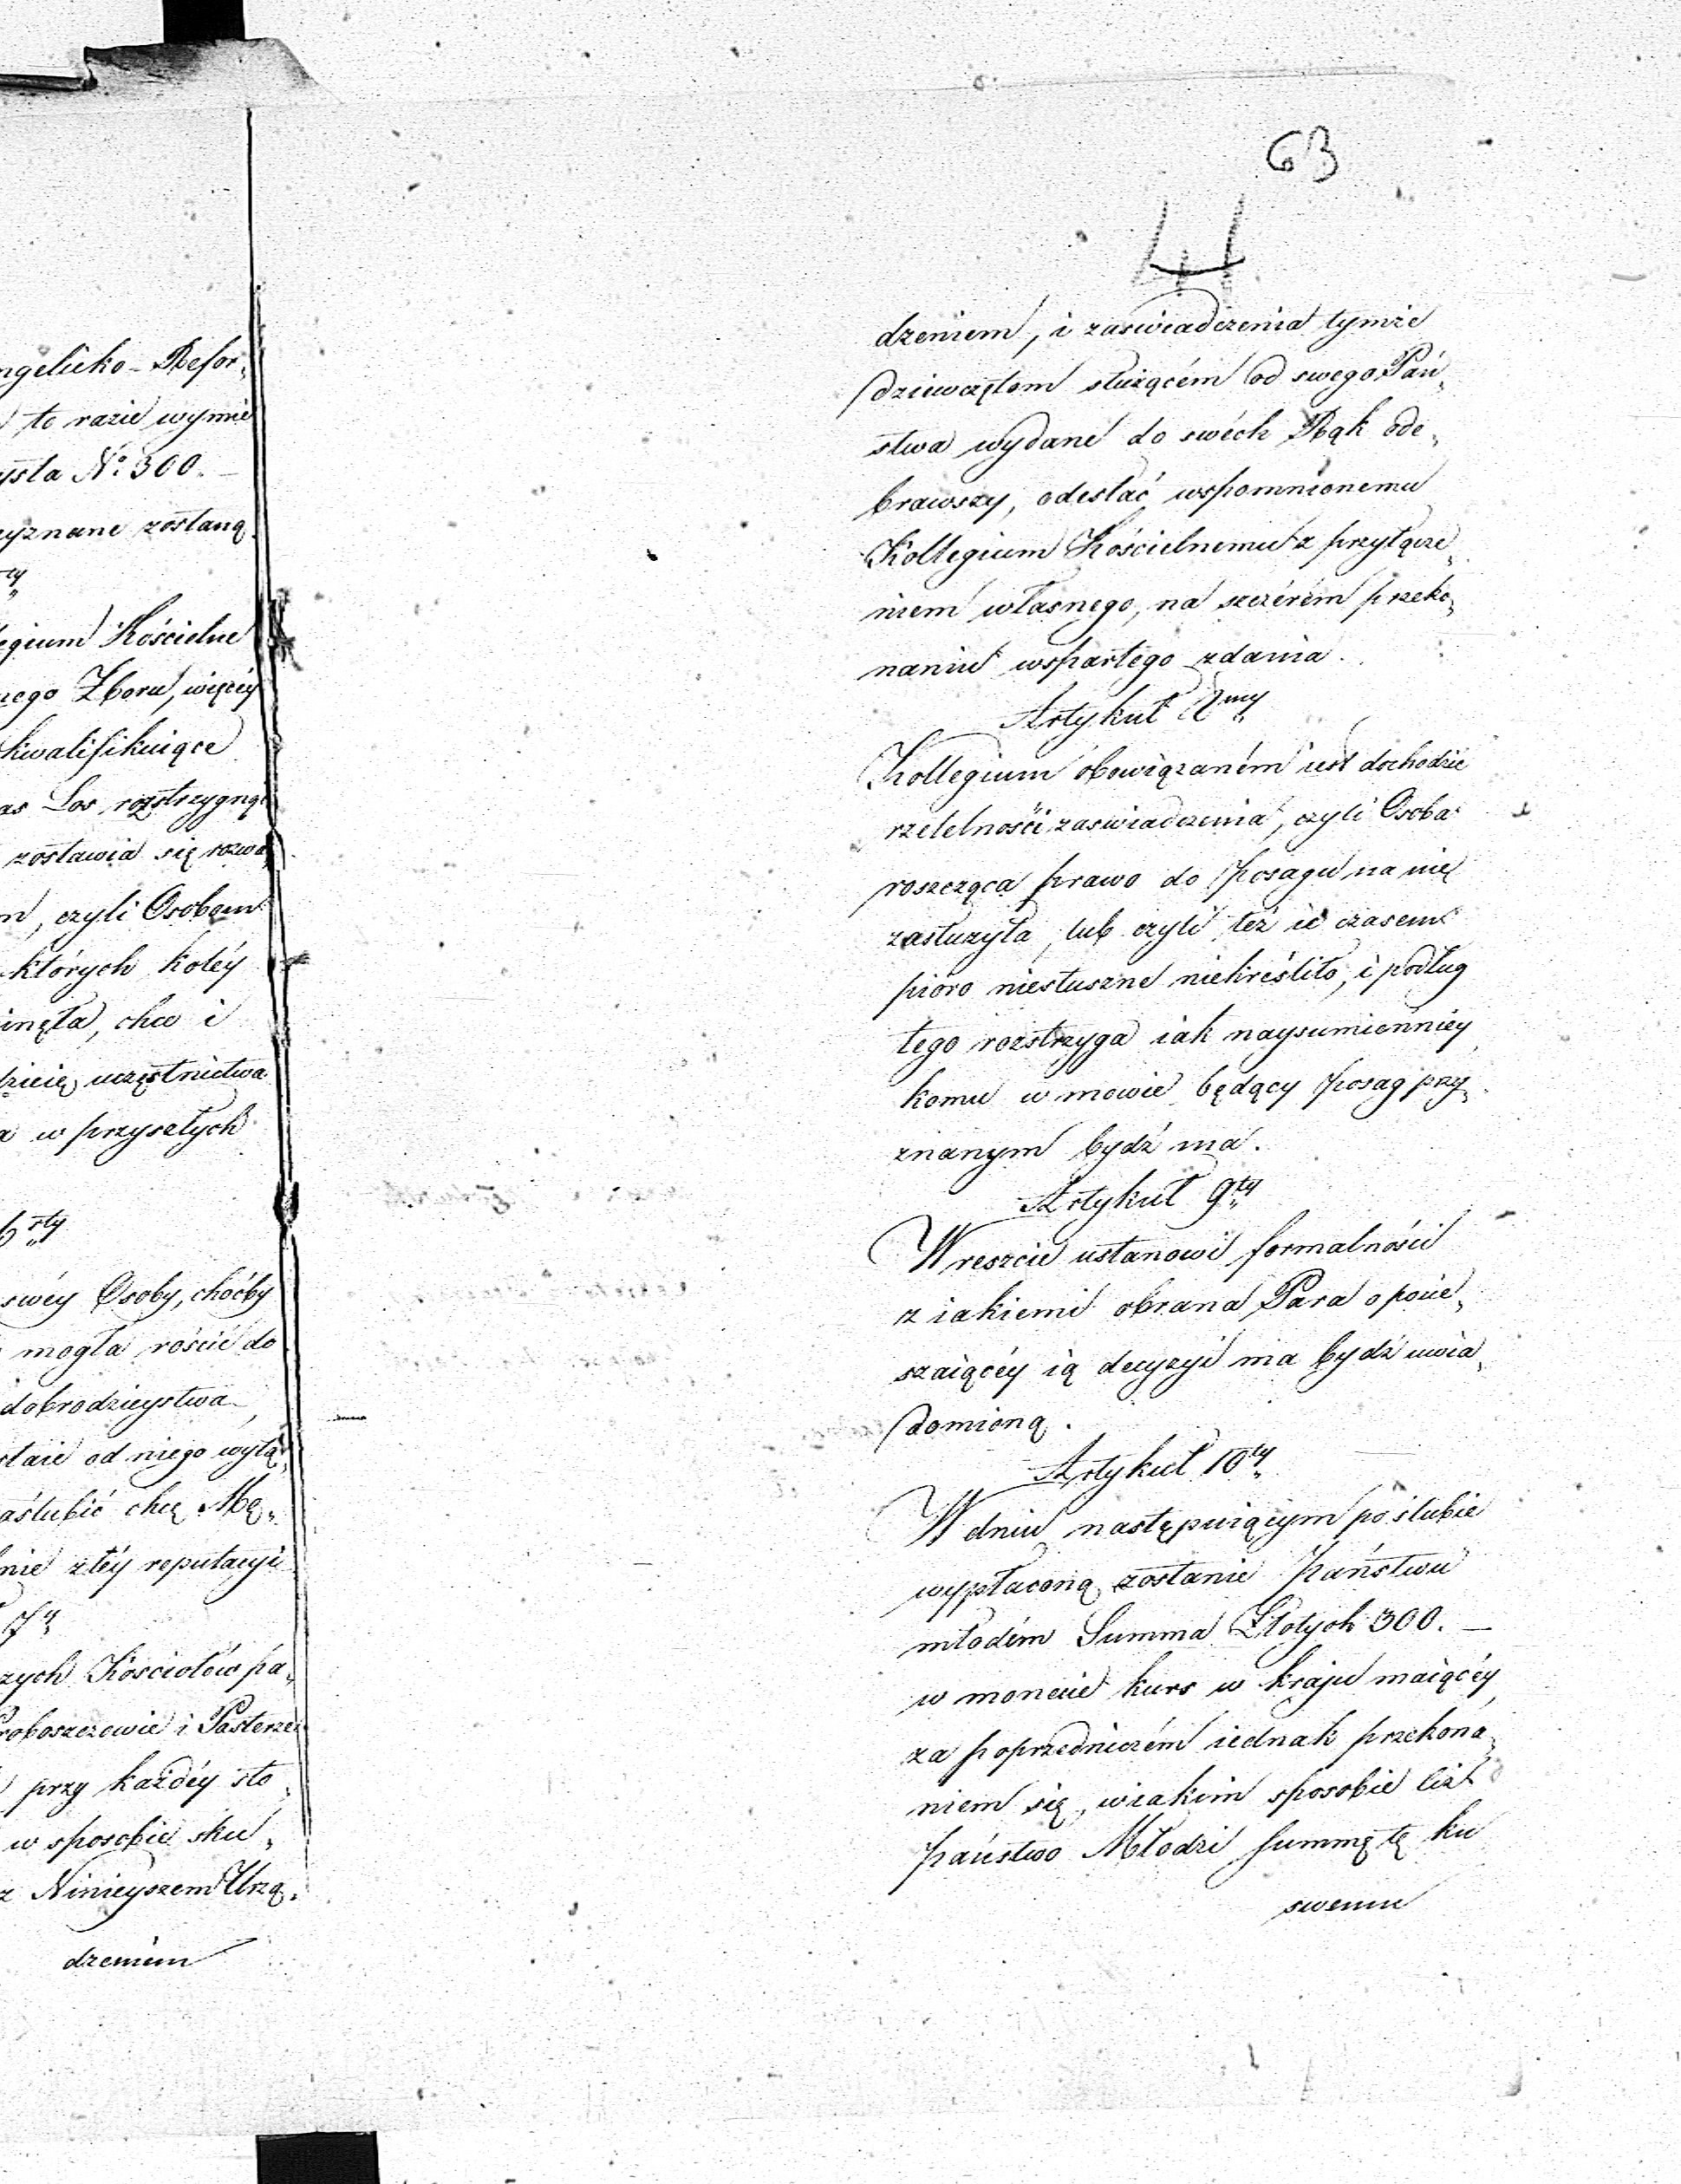 ngelicko-Refor„
to razie wymie
ysta No. 300.—
yznane zostaną
ty
egium Kościelne
nego Zboru, więcéy
kwalifikuiące
as Los rozstrzygnąć
zostawia się rozwa„
m, czyli Osobom
których koléy
inęła, chce i
dzieię uczęstnictwa
a w przyszłych
6sty
swéy Osoby, choćby
mogła rościć do
dobrodzieystwa,
staie od niego wyłą„
aślubić chcę Mę„
nie złéy reputacyi
7y
zych Kościołów pa„
Proboszczowie i Pasterze
przy każdéy sto„
w sposobie sku„
z Ninieyszem Urzą„
dzeniem
63
4
dzeniem, i zaswiadczenia tymże
dziewczętom służącém od swego Pań„
stwa wydane do swéch Rąk ode„
brawszy, odesłać wspomnionemu
Kollegium Kościelnemu z przyłącze„
niem własnego, na szczérém przeko„
naniu wspartego zdania.
Artykuł 8my
Kollegium obowiązaném iest dochodzić
rzetelności zaswiadczenia, czyli Osoba
roszcząca prawo do posagu na nię
zasłużyła, lub czyli też ie czasem
pioro niesłuszne niekreśliło, i podług
tego rozstrzyga iak naysumienniey
komu w mowie będący posag przy„
znanym bydź ma.
Artykuł 9ty
Wreszcie ustanowi formalności
z iakiemi obrana Para o pocie„
szaiącéy ią decyzyi ma bydź uwia„
domioną.
Artykuł 10ty
W dniu następuiącym po ślubie
wypłaconą zostanie państwu
młodém Summa Złotych 300.—
w monecie kurs w kraju maiącéy
za poprzedniczém iednak przekona„
niem się, wiakim sposobie liż
państwo Młodzi summę tę ku
swemu